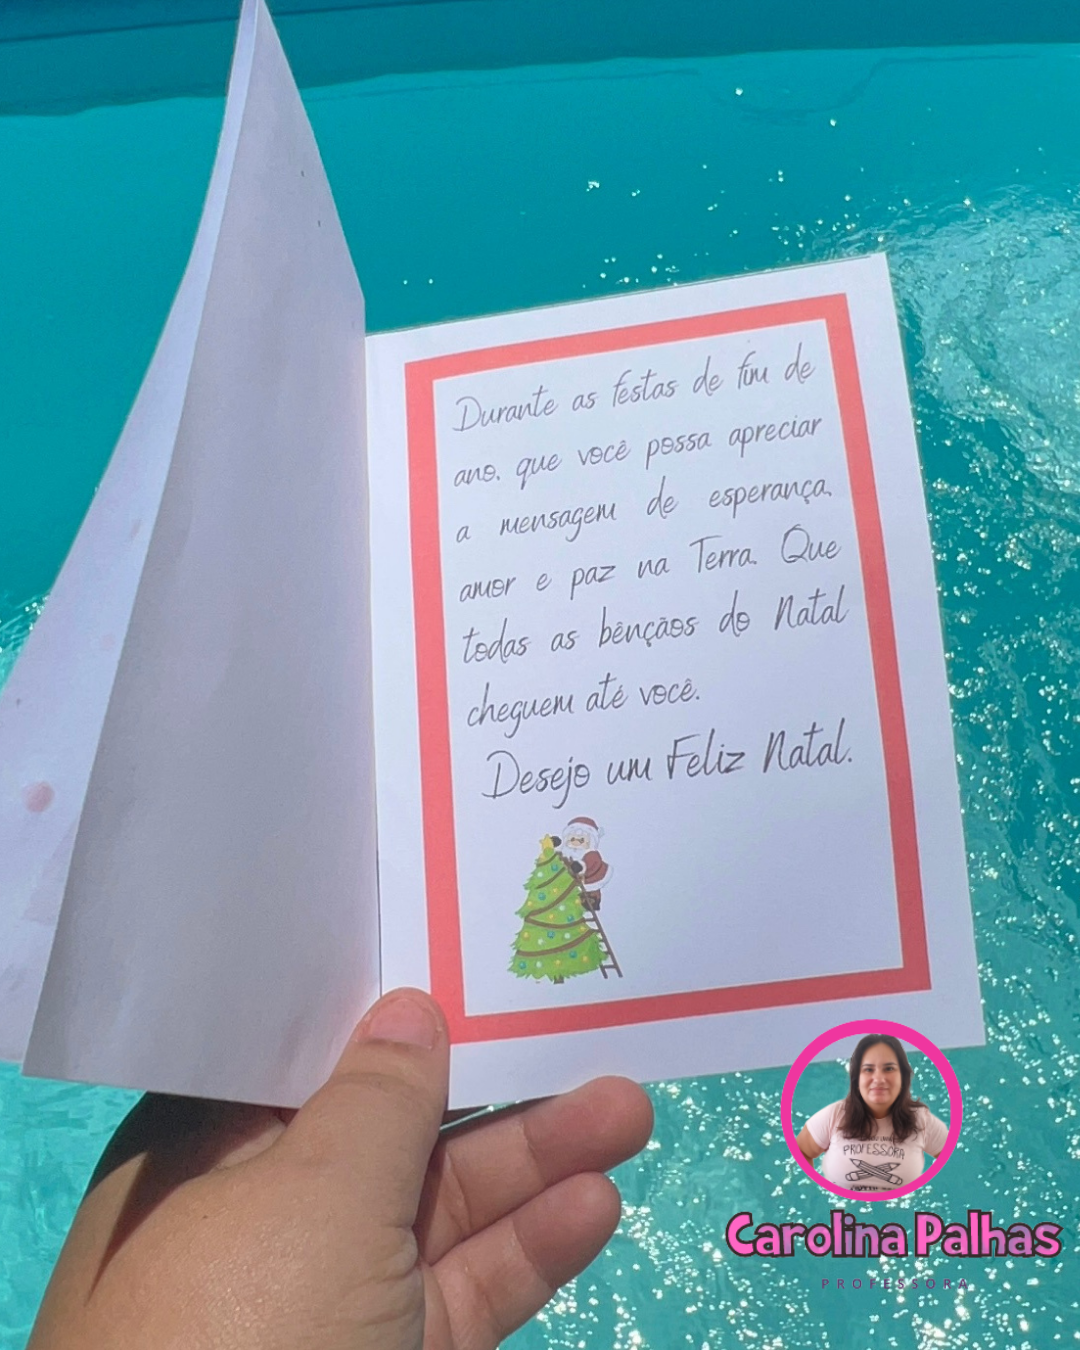 Durante as festas de fim de
ano, que você possa apreciar
a mensagem de esperança,
amor e paz na Terra. Que
todas as bênçãos do Natal
cheguem até você.
Desejo um Feliz Natal.
PROFESSORA
Carolina Palhas
PROFESSORA